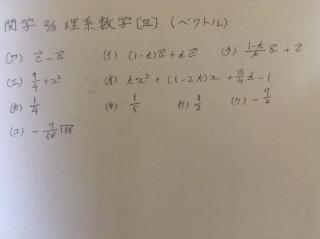 関学 2/3 理系数学[Ⅲ] (ベクトル)
(ア) c⃗ - a⃗ (イ) (1-t)a⃗ + t c⃗ (ウ) (1-t)/t a⃗ + c⃗
(エ) 9/4 + x² (オ) t x² + (1-2t)x + 13/4 t - 1
(カ) 1/4 (キ) 1/5 (ク) 1/2 (ケ) - 7/2
(コ)